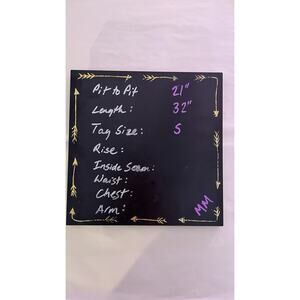 Pit to Pit 21"
Length: 32"
Tag Size: S
Rise:
Inside Seam:
Waist:
Chest:
Arm:
MM